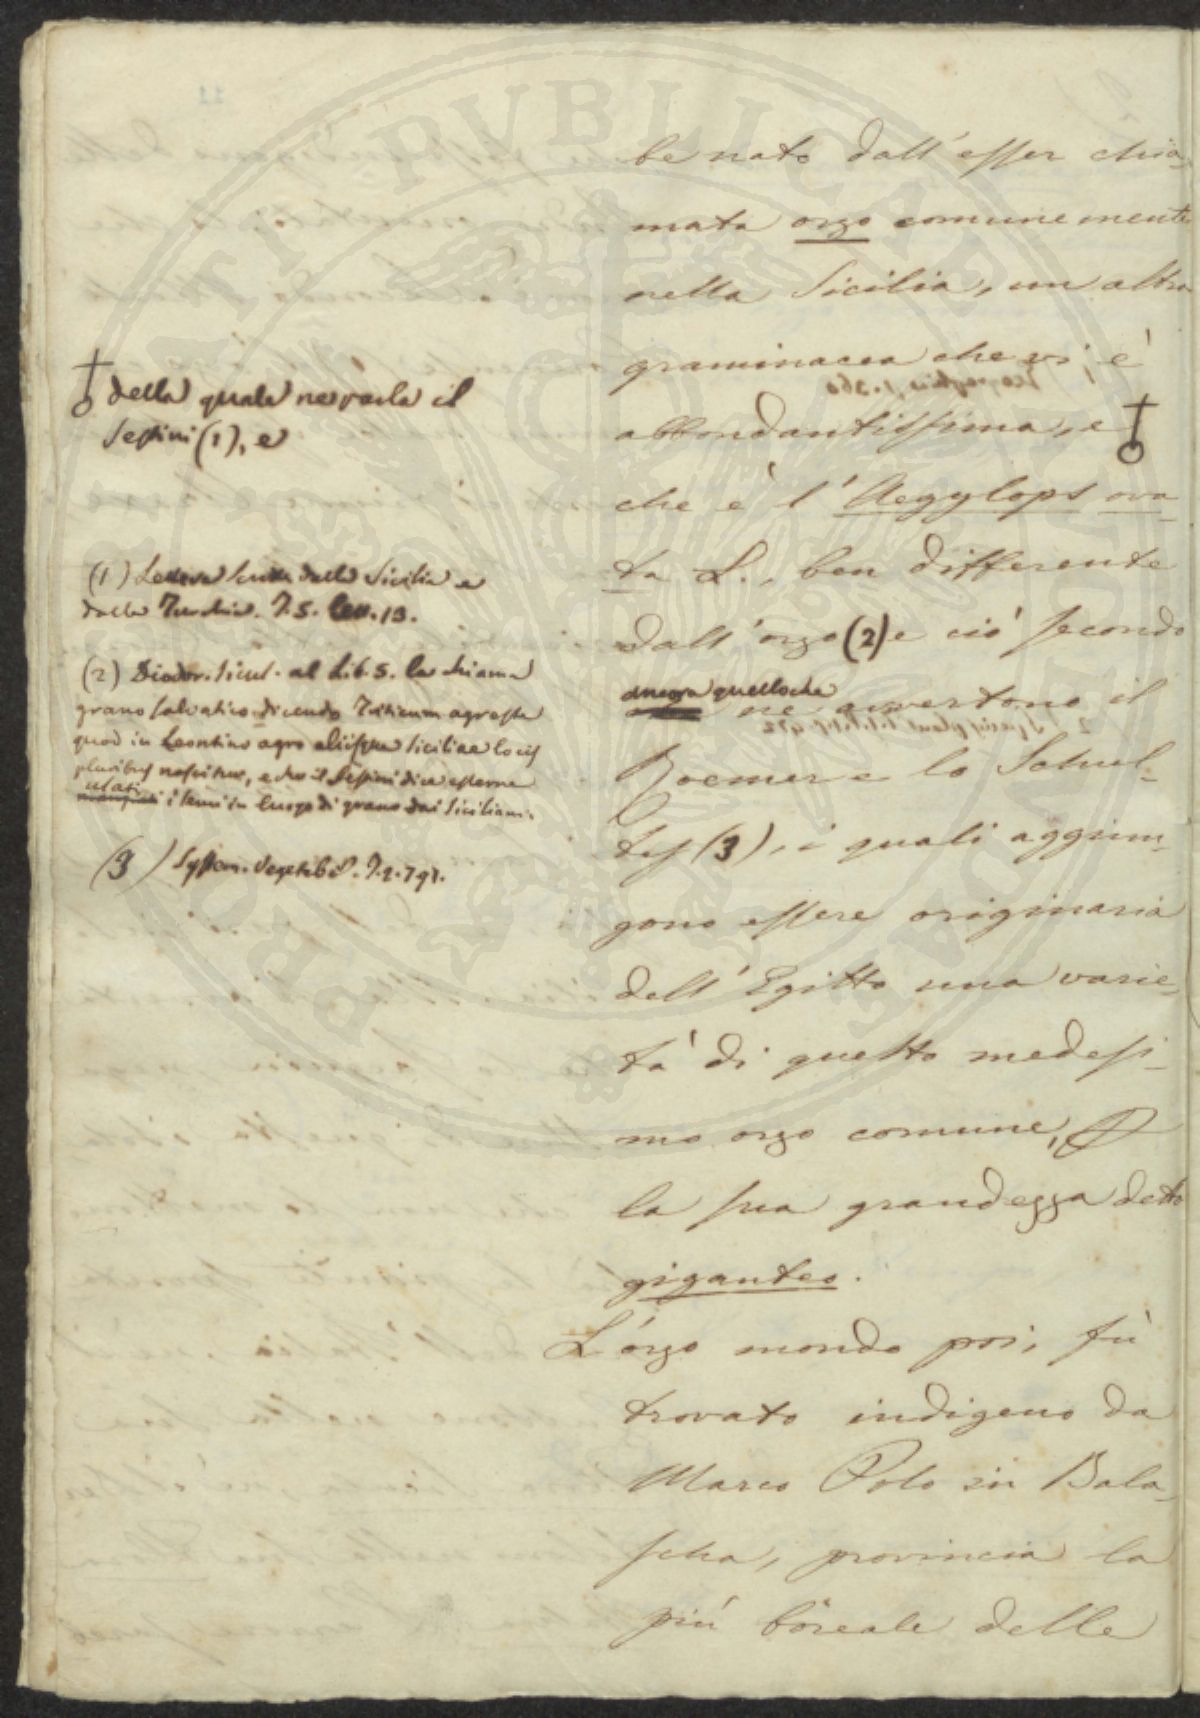 be nato dall'esser chia-
mata orzo comunemente
nella Sicilia, un altra
graminacea che vi è
abbondantissima, e
che è l'Aegylops ova-
ta L., ben differente
dall'orzo (2) e ciò secondo
ancora quello che
ne avvertono il
Roemer e lo Schul-
tes (3), i quali aggiun-
gono essere originaria
dell'Egitto una varie-
tà di questo medesi-
mo orzo comune,
la sua grandezza detto
giganteo.
L'orzo mondo poi, fù
trovato indigeno da
Marco Polo in Bala-
scha, provincia la
più boreale delle
della quale ne parla il
Sestini (1), e
(1) Lettere scritte dalla Sicilia e
dalla Turchia. T. 5. Lett. 13.
(2) Diodor. Sicul. al Lib. 5. la chiama
grano salvatico dicendo Triticum agreste
quod in Leontino agro aliisque Siciliae locis
pluribus nascitur, e che il Sestini dice esserne
usati
i semi in luogo di grano dai Siciliani.
(3) System. Vegetabil. T. 2. 791.
PRO BLICAE